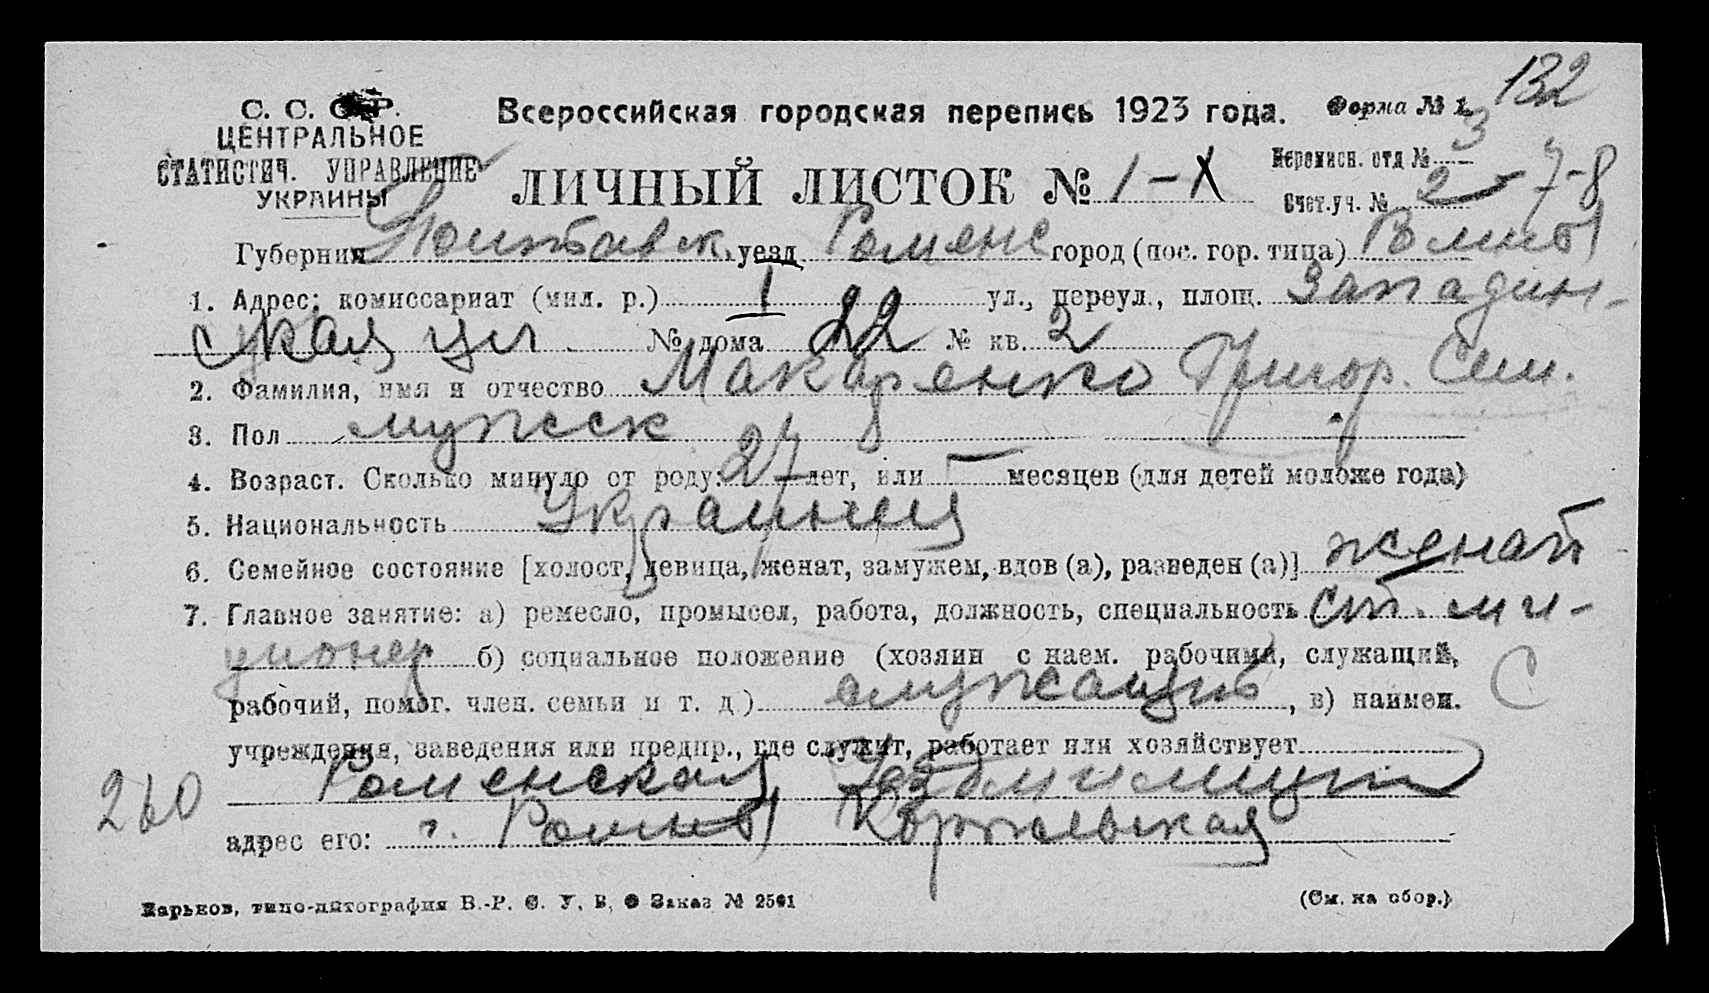 132
С. С. С. Р.
ЦЕНТРАЛЬНОЕ
СТАТИСТИЧ. УПРАВЛЕНИЕ
УКРАИНЫ
Всероссийская городская перепись 1923 года. Форма № 1.
Переписн. отд № 3
ЛИЧНЫЙ ЛИСТОК № 1 – X
Счет. уч. № 2 – 7-8
Губерния Полтавск. уезд Роменс город (пос. гор. типа) Ромны
1. Адрес: комиссариат (мил. р.) 1 ул., переул., площ. Западин-
ская ул № дома 22 № кв. 2
2. Фамилия, имя и отчество Макаренко Григор. Сем.
3. Пол мужеск
4. Возраст. Сколько минуло от роду: 27 лет, или — месяцев (для детей моложе года)
5. Национальность Украинец
6. Семейное состояние [холост, девица, женат, замужем, вдов (а), разведен (а)] женат
7. Главное занятие: а) ремесло, промысел, работа, должность, специальность ст. ми-
ционер б) социальное положение (хозяин с наем. рабочими, служащий,
рабочий, помог. член. семьи и т. д.) служащий, в) наимен. С
учреждения, заведения или предпр., где служит, работает или хозяйствует
260 Роменская
адрес его: г. Ромны Коржевская
Харьков, типо-литография В.-Р. С. У. В. О Заказ № 2591
(См. на обор.)